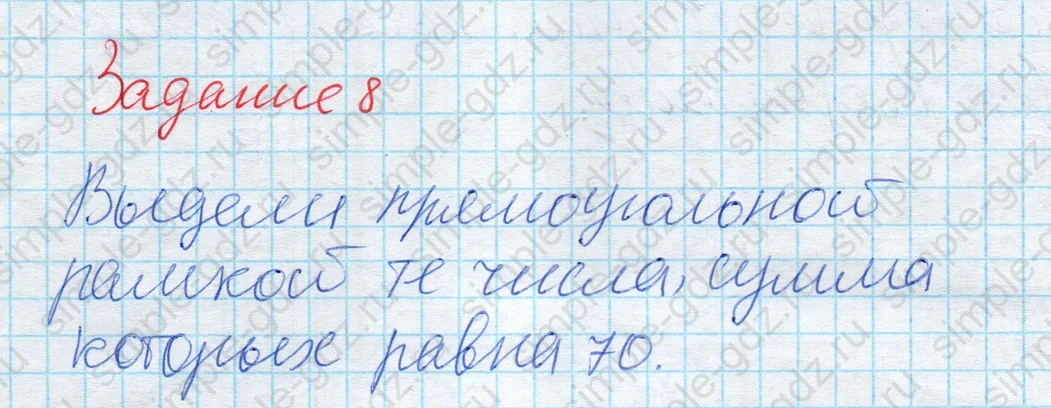 Задание 8
Выдели прямоугольной
рамкой те числа, сумма
которых равна 70.